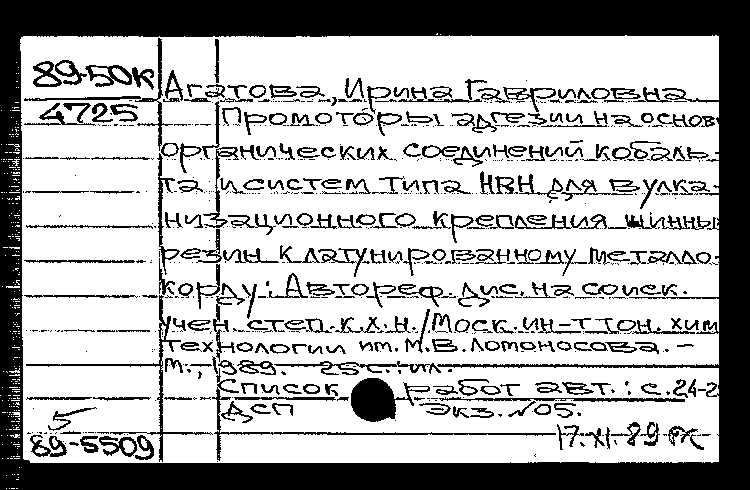 89-50к Агатова, Ирина Гавриловна
4725 Промоторы адгезии на основ
органических соединений кобаль-
та и систем типа НВН для вулка-
низационного крепления шинны
резин к латунированному металло-
корду: Автореф. дис. на соиск.
учен. степ. к.х.н. / Моск. ин-т тон. хим
технологии им. М.В. Ломоносова. -
М., 1989. 25 с.: ил.
Список работ авт.: с. 24-2
ДСП Экз. №05.
89-5509 17.XI.89